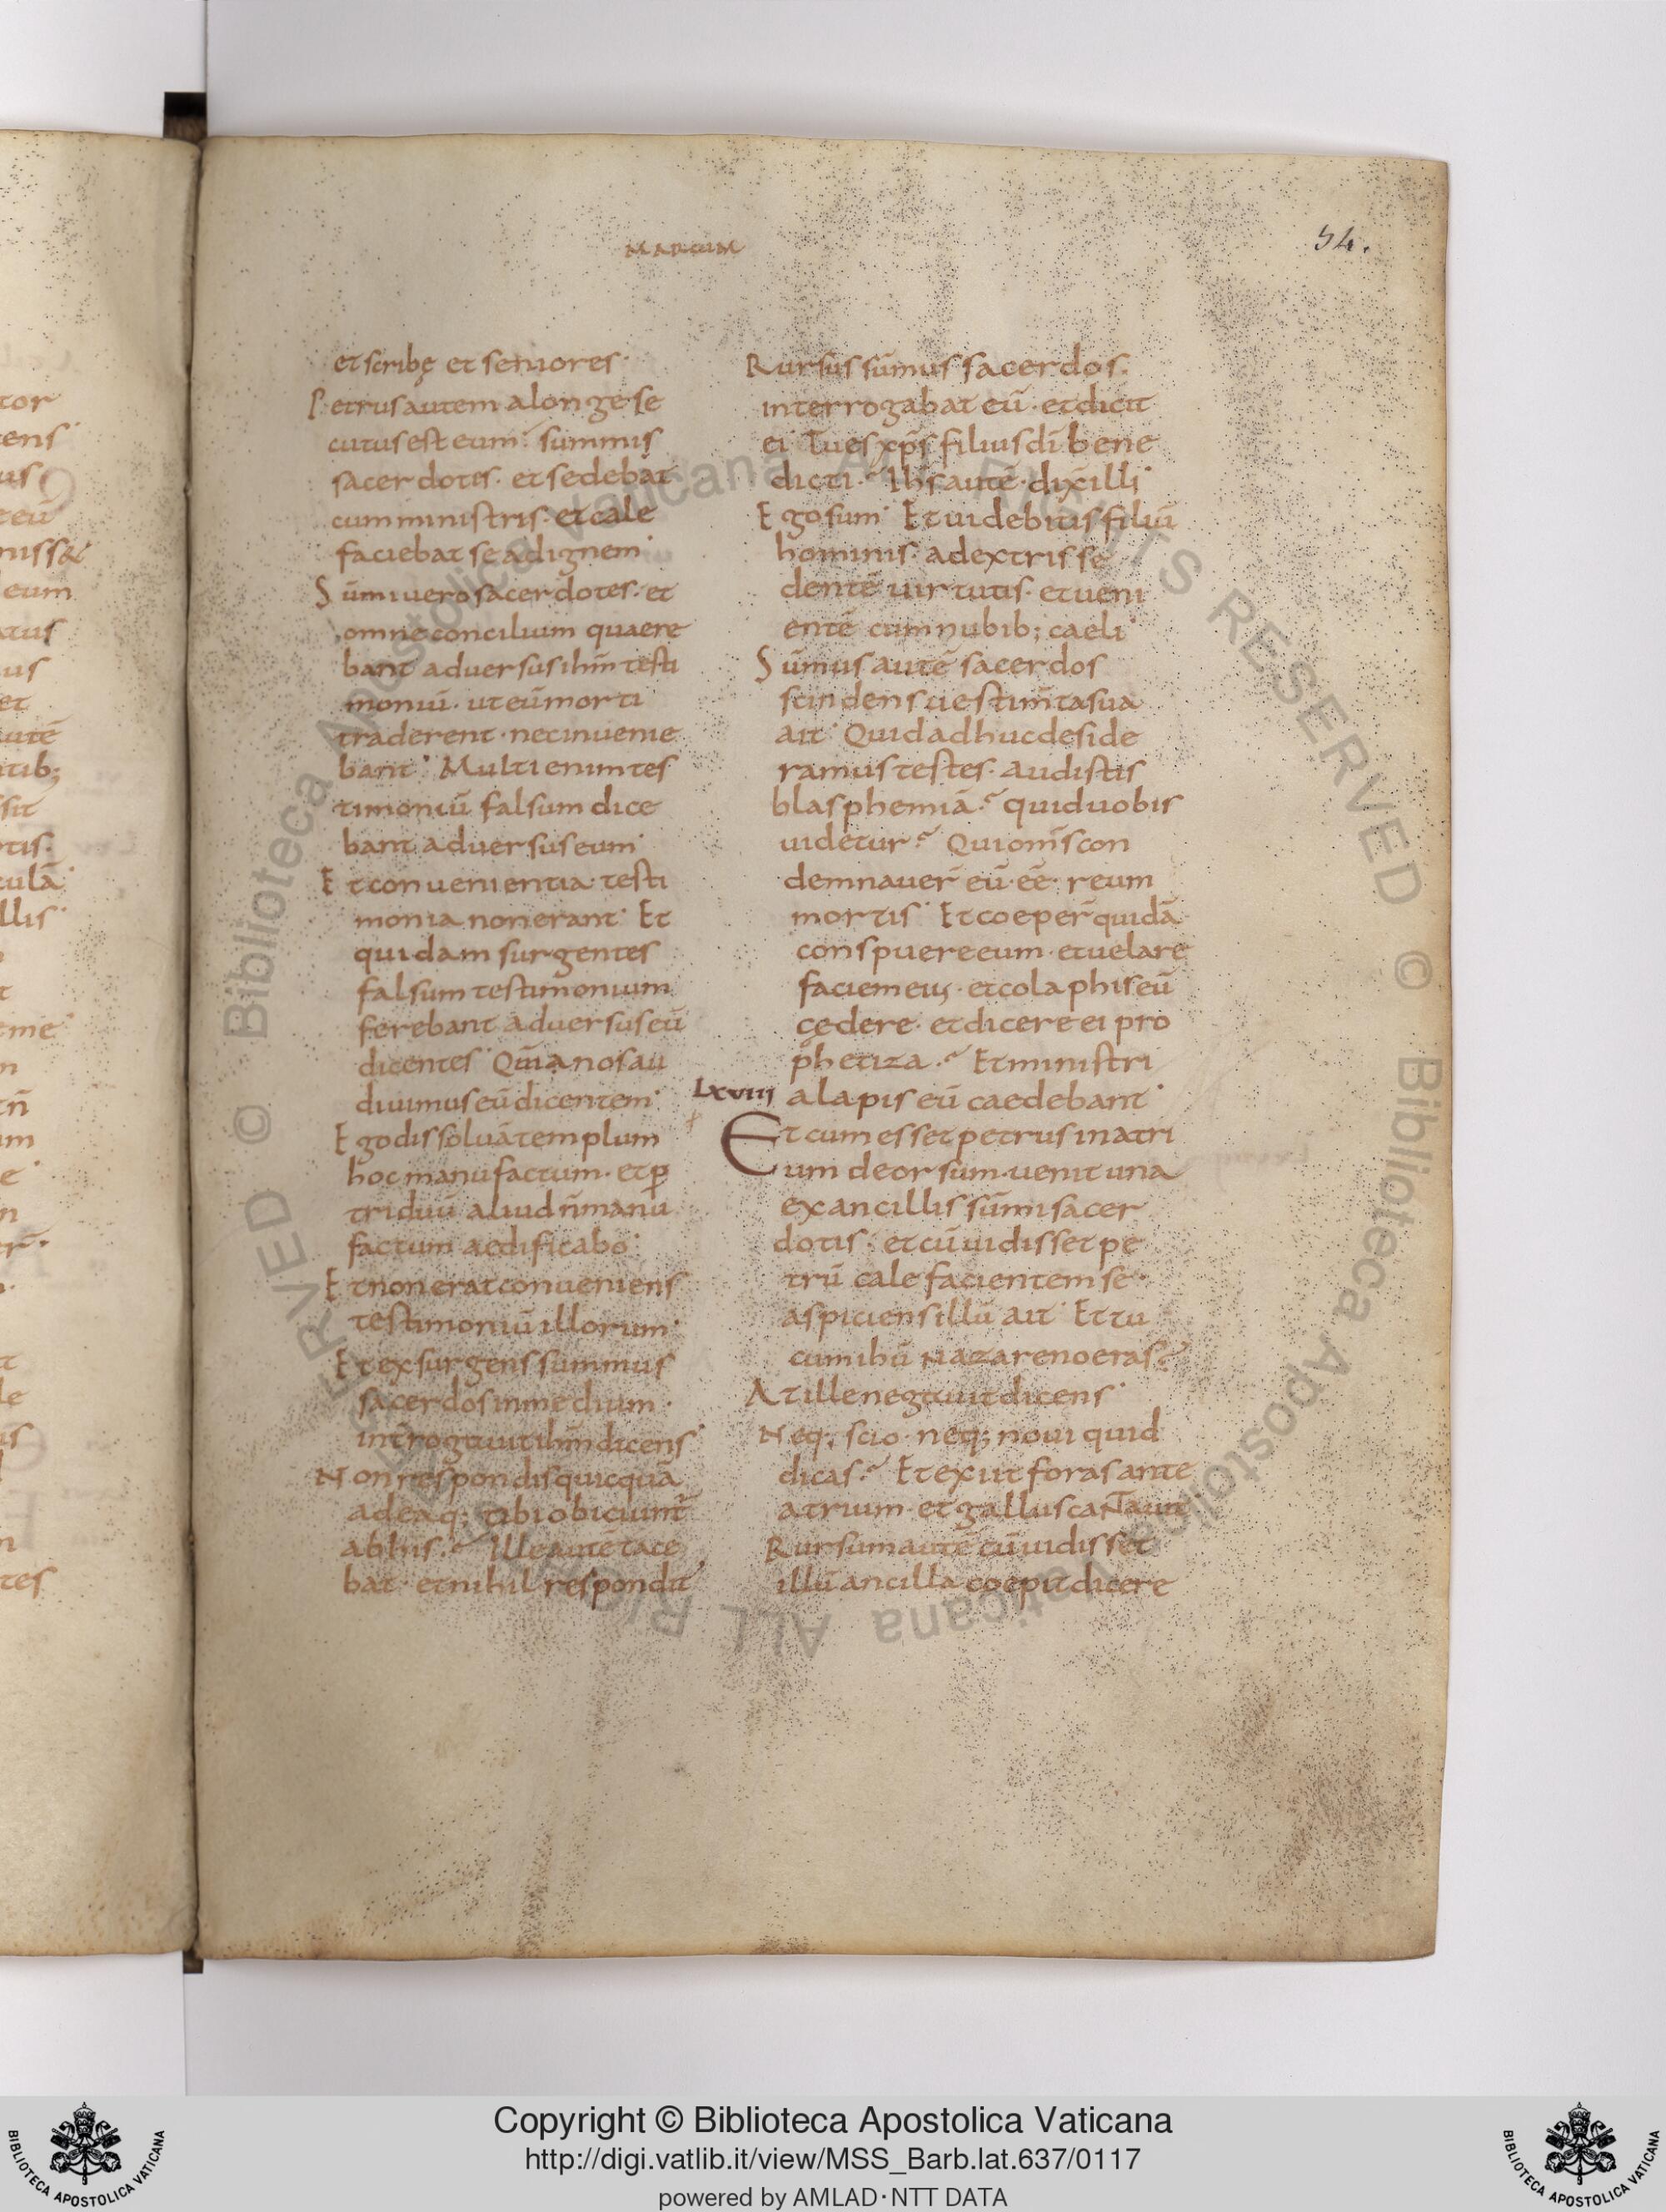 MARCUM
54.
et scribę et seniores·
Petrus autem a longe se
cutus est eum· summis
sacerdotis· et sedebat
cum ministris· et cale
faciebat se ad ignem·
Sūmi uero sacerdotes· et
omne concilium quaere
bant aduersus ihm̄ testi
moniū· ut eū morti
traderent· nec inuenie
bant· Multi enim tes
timoniū falsum dice
bant aduersus eum·
Et conuenientia testi
monia non erant· Et
quidam surgentes
falsum testimonium
ferebant aduersus eū
dicentes· Qm̄ia nos au
diuimus eū dicentem·
Ego dissoluā templum
hoc manufactum· et ꝑ
triduū aliud n̄ manu
factum aedificabo·
Et non erat conueniens
testimoniū illorum·
Et exsurgens summus
sacerdos in medium·
int̄rogauit ihm̄ dicens·
Non respondis quicquā
ad ea q; tibi obiciunt̄
ab his? Ille autē tace
bat· et nihil respondit
Rursus sūmus sacerdos·
interrogabat eū· et dicit
ei· Tu es xp̄s filius dī bene
dicti? Ihs̄ autē· dix̄ illi·
Ego sum· Et uidebitis filiū
hominis· a dextris se
dentē uirtutis· et ueni
entē cum nubib; caeli·
Sūmus autē sacerdos
scindens uestim̄ta sua
ait· Quid adhuc deside
ramus testes· audistis
blasphemiā? quid uobis
uidetur? Qui om̄s con
demnauer̄ eū· eē· reum
mortis· Et coeper̄ quidā
conspuere eum· et uelare
faciem eius· et colaphis eū
cędere· et dicere ei pro
phetiza? Et ministri
LXVIII alapis eū caedebant·
Et cum esset petrus in atri
um deorsum· uenit una
ex ancillis sūmi sacer
dotis· et cū uidisset pe
trū calefacientem se·
aspiciens illū ait· Et tu
cum ihū nazareno eras?
At ille negauit dicens·
Neq; scio· neq; noui quid
dicas? Et exiit foras ante
atrium· et gallus cantauit
Rursum autē cū uidisset
illū ancilla coepit dicere
© Biblioteca Apostolica Vaticana ALL RIGHTS RESERVED © Biblioteca Apostolica Vaticana ALL RIGHTS RESERVED
Copyright © Biblioteca Apostolica Vaticana
http://digi.vatlib.it/view/MSS_Barb.lat.637/0117
powered by AMLAD·NTT DATA
BIBLIOTECA APOSTOLICA VATICANA
BIBLIOTECA APOSTOLICA VATICANA